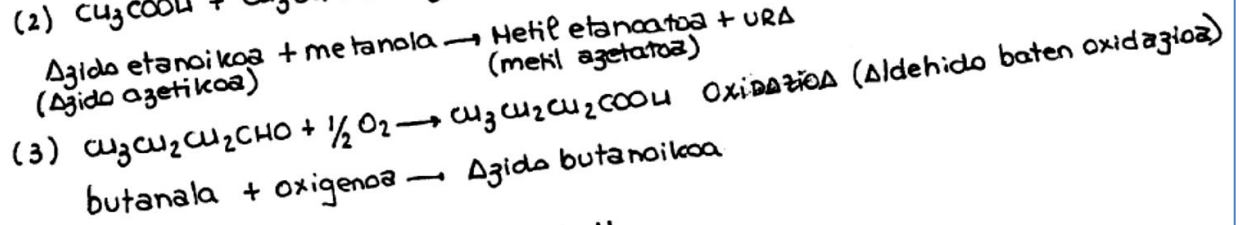 (2) CH₃COOH +
Azido etanoikoa + metanola → Metil etanoatoa + URA
(Azido azetikoa) (metil azetatoa)
(3) CH₃CH₂CH₂CHO + 1/2 O₂ → CH₃CH₂CH₂COOH OXIDAZIOA (Aldehido baten oxidazioa)
butanala + oxigenoa → Azido butanoikoa